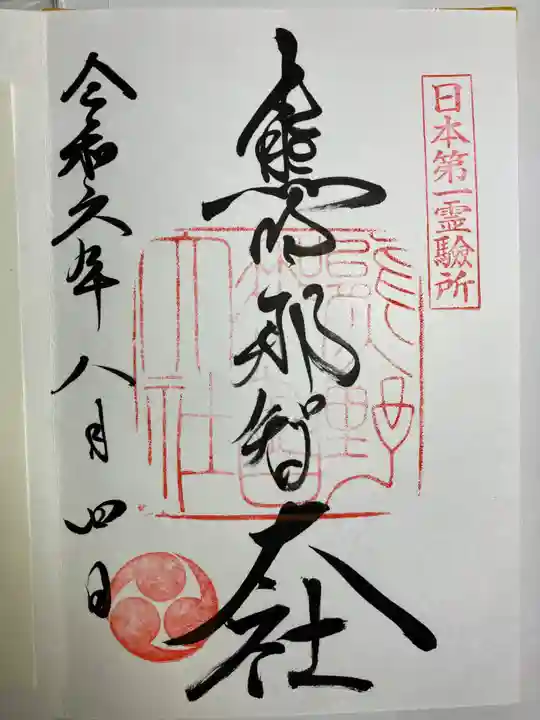 日本第一霊験所
熊野那智大社
熊野那智大社
令和六年八月四日